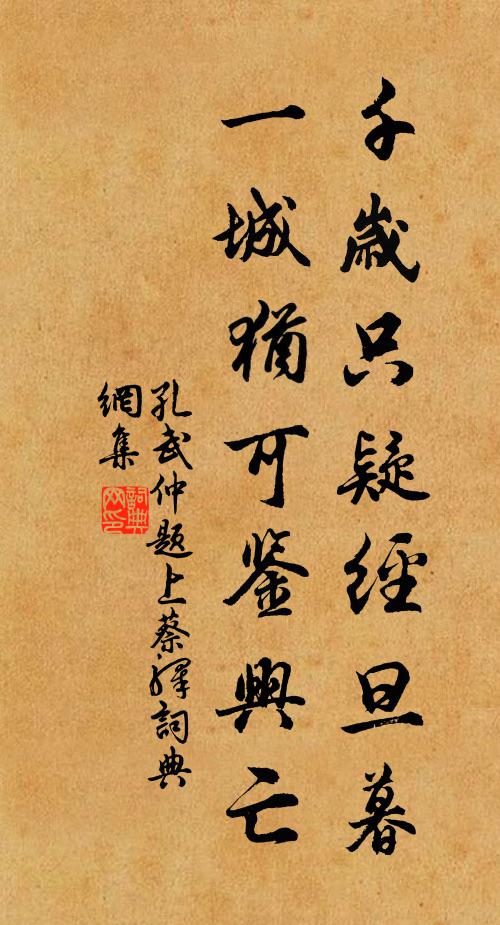 千歲只疑經旦暮
一城猶可鉴興亡
孔武仲題上蔡驛詞典
網集
詞典網印